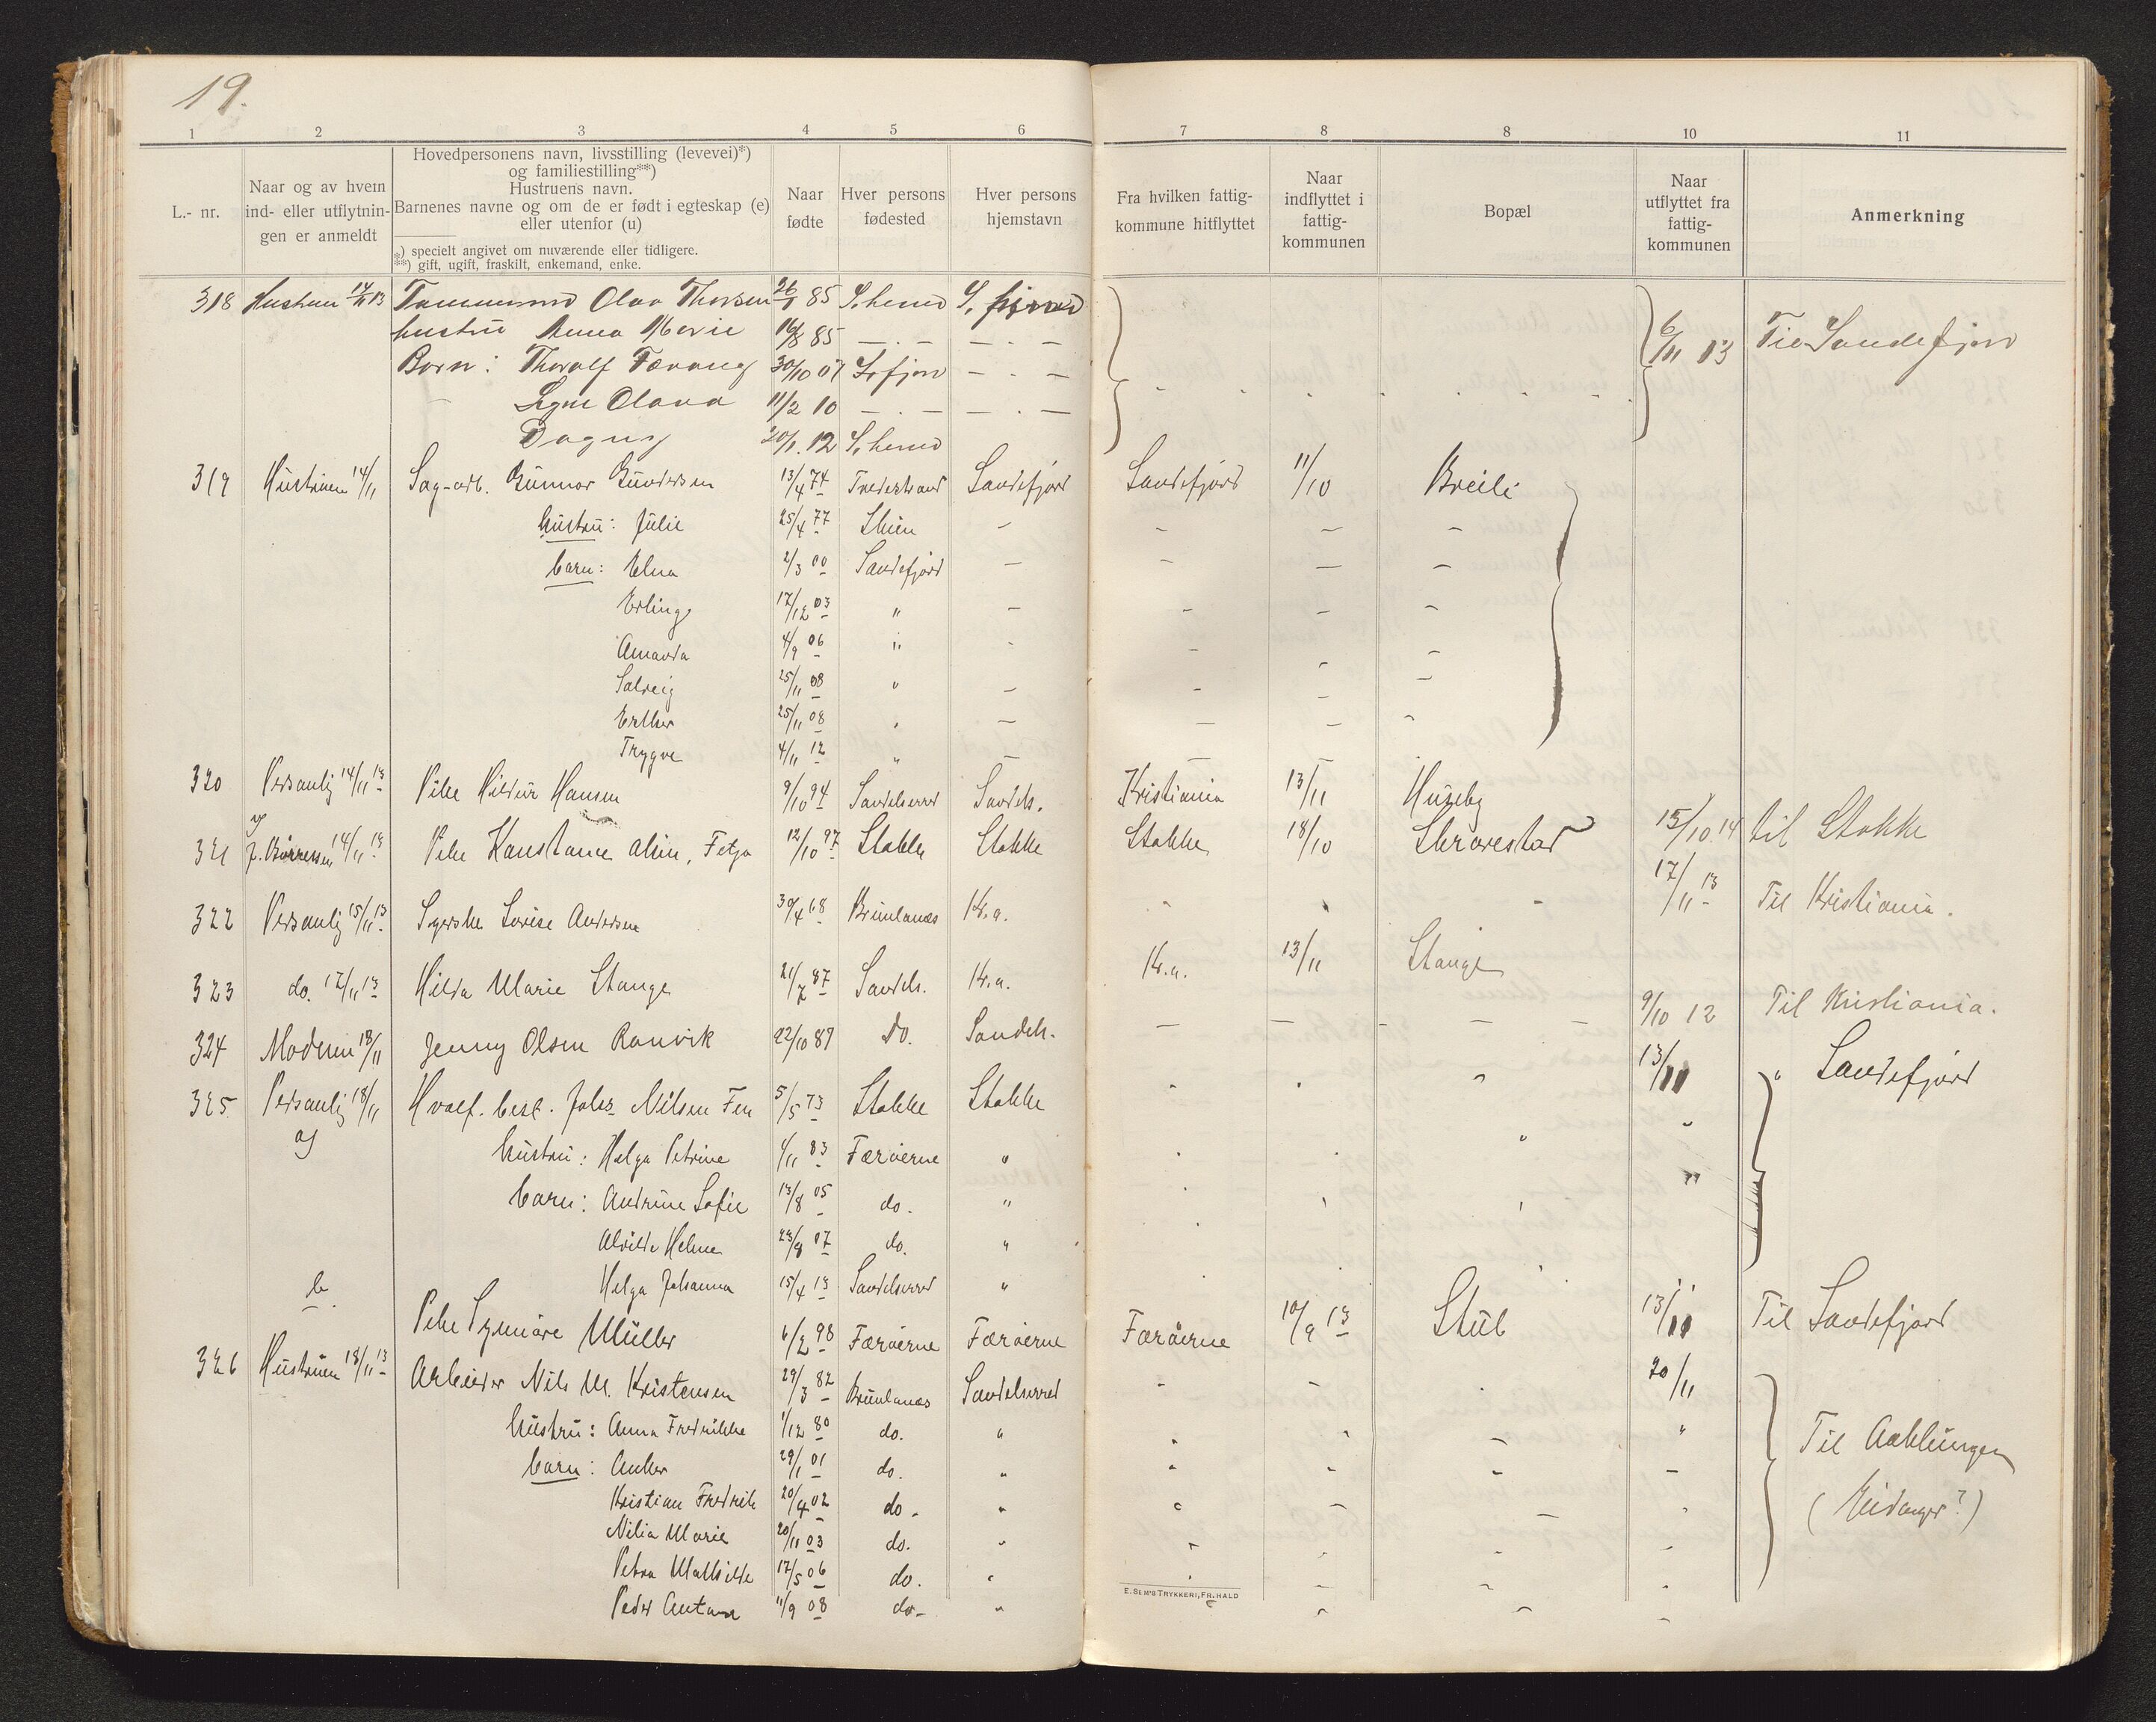 19.
1 2 3 4 5 6 7 8 8 10 11
L.- nr.
Naar og av hvem
ind- eller utflytnin-
gen er anmeldt
Hovedpersonens navn, livsstilling (levevei)*)
og familiestilling**)
Hustruens navn.
Barnenes navne og om de er født i egteskap (e)
eller utenfor (u)
*) specielt angivet om nuværende eller tidligere.
**) gift, ugift, fraskilt, enkemand, enke.
Naar
fødte
Hver persons
fødested
Hver persons
hjemstavn
Fra hvilken fattig-
kommune hitflyttet
Naar
indflyttet i
fattig-
kommunen
Bopæl
Naar
utflyttet fra
fattig-
kommunen
Anmerkning
318 Hustruen 14/11 13 Tømmermd Olav Thorsen 26/1 85 S.herred S. 6/11 13 Til Sandefjord
hustru Anna Marie 16/8 85 — . — — . —
Børn : Thoralf Færang 30/10 07 S.fjord — . —
Signe Olava 11/2 10 — . — — . —
Dagny 20/1. 12 S.herred
319 Hustruen 14/11 Sag-arb. Gunnar Gundersen 13/4 74 Fredrikstad Sandefjord Sandefjord 11/10 Breili
hustru: Julie 25/4 77 Skien - - - -
barn: Elna 2/3 00 Sandefjord - - - -
Erling 17/12 03 " - - - -
Amanda 4/9 06 " - - - -
Solveig 25/11 08 " - - - -
Esther 25/11 08 " - - - -
Trygve 4/11 12 " - -
320 Personlig 14/11 13 Pike Hildur Hansen 9/10 94 Sandeherred Sandeh. Kristiania 13/11 Huseby
321 J. Børresen 14/11 13 Pike Konstance Alvin, Fetja 12/10 97 Stokke Stokke Stokke 18/10 Skravestad 15/10 14 til Stokke
322 Personlig 15/11 13 Syerske Lovise Andersen 30/4 68 Brunlanæs Kr.a. - - 17/11 13 Til Kristiania.
323 do. 17/11 13 Hilda Marie Stange 21/7 87 Sandeh. Kr.a. Kr.a. 13/11 Stange
324 Moderen 18/11 Jenny Olsen Ranvik 22/10 87 do. Sandeh. — — - — - 9/10 12 Til Kristiania.
325 Personlig 18/11 Hvalf. best. Johs Nilsen Fen 5/5 73 Stokke Stokke 13/11 " Sandefjord
a) hustru: Helga Petrine 4/11 83 Færøerne " "
barn: Andrine Sofie 13/8 05 do. " "
Alvilde Helene 23/8 07 do. "
Helga Johanna 15/4 13 Sandeherred "
b Pike Müller 6/2 98 Færøerne Færøerne Færøerne 10/9 13 Stub 13/11 Til Sandefjord
326 Hustruen 18/11 13 Arbeider Nils M. Kristensen 29/3 82 Brunlanæs Sandeherred - - . 20/11
hustru: Anna Fredrikke 1/12 80 do. " " Til Aaklungen
barn: Anker 29/1 01 do. "
Kristian Fredrik 20/4 02 do - " (Eidanger?)
Nilia Marie 20/11 03 do. "
Petra Mathilde 17/5 06 do. "
Peder Anton 11/9 08 do- "
E. SEM'S TRYKKERI, FR.HALD